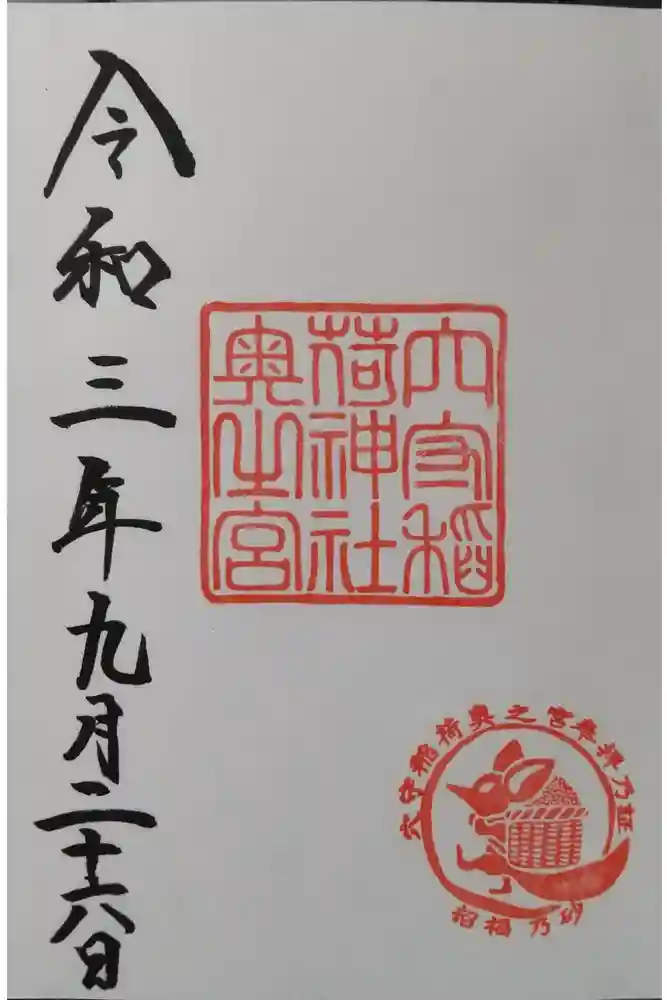 穴守稲
荷神社
奥之宮
穴守稲荷奥之宮奉拝乃証
招福乃砂
令和三年九月二十六日